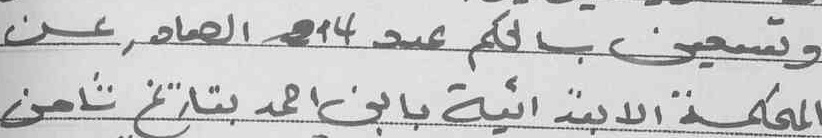 وتسعين بالحكم عدد 214 الصادر عن
المحكمة الابتدائية بابن احمد بتاريخ ثامن